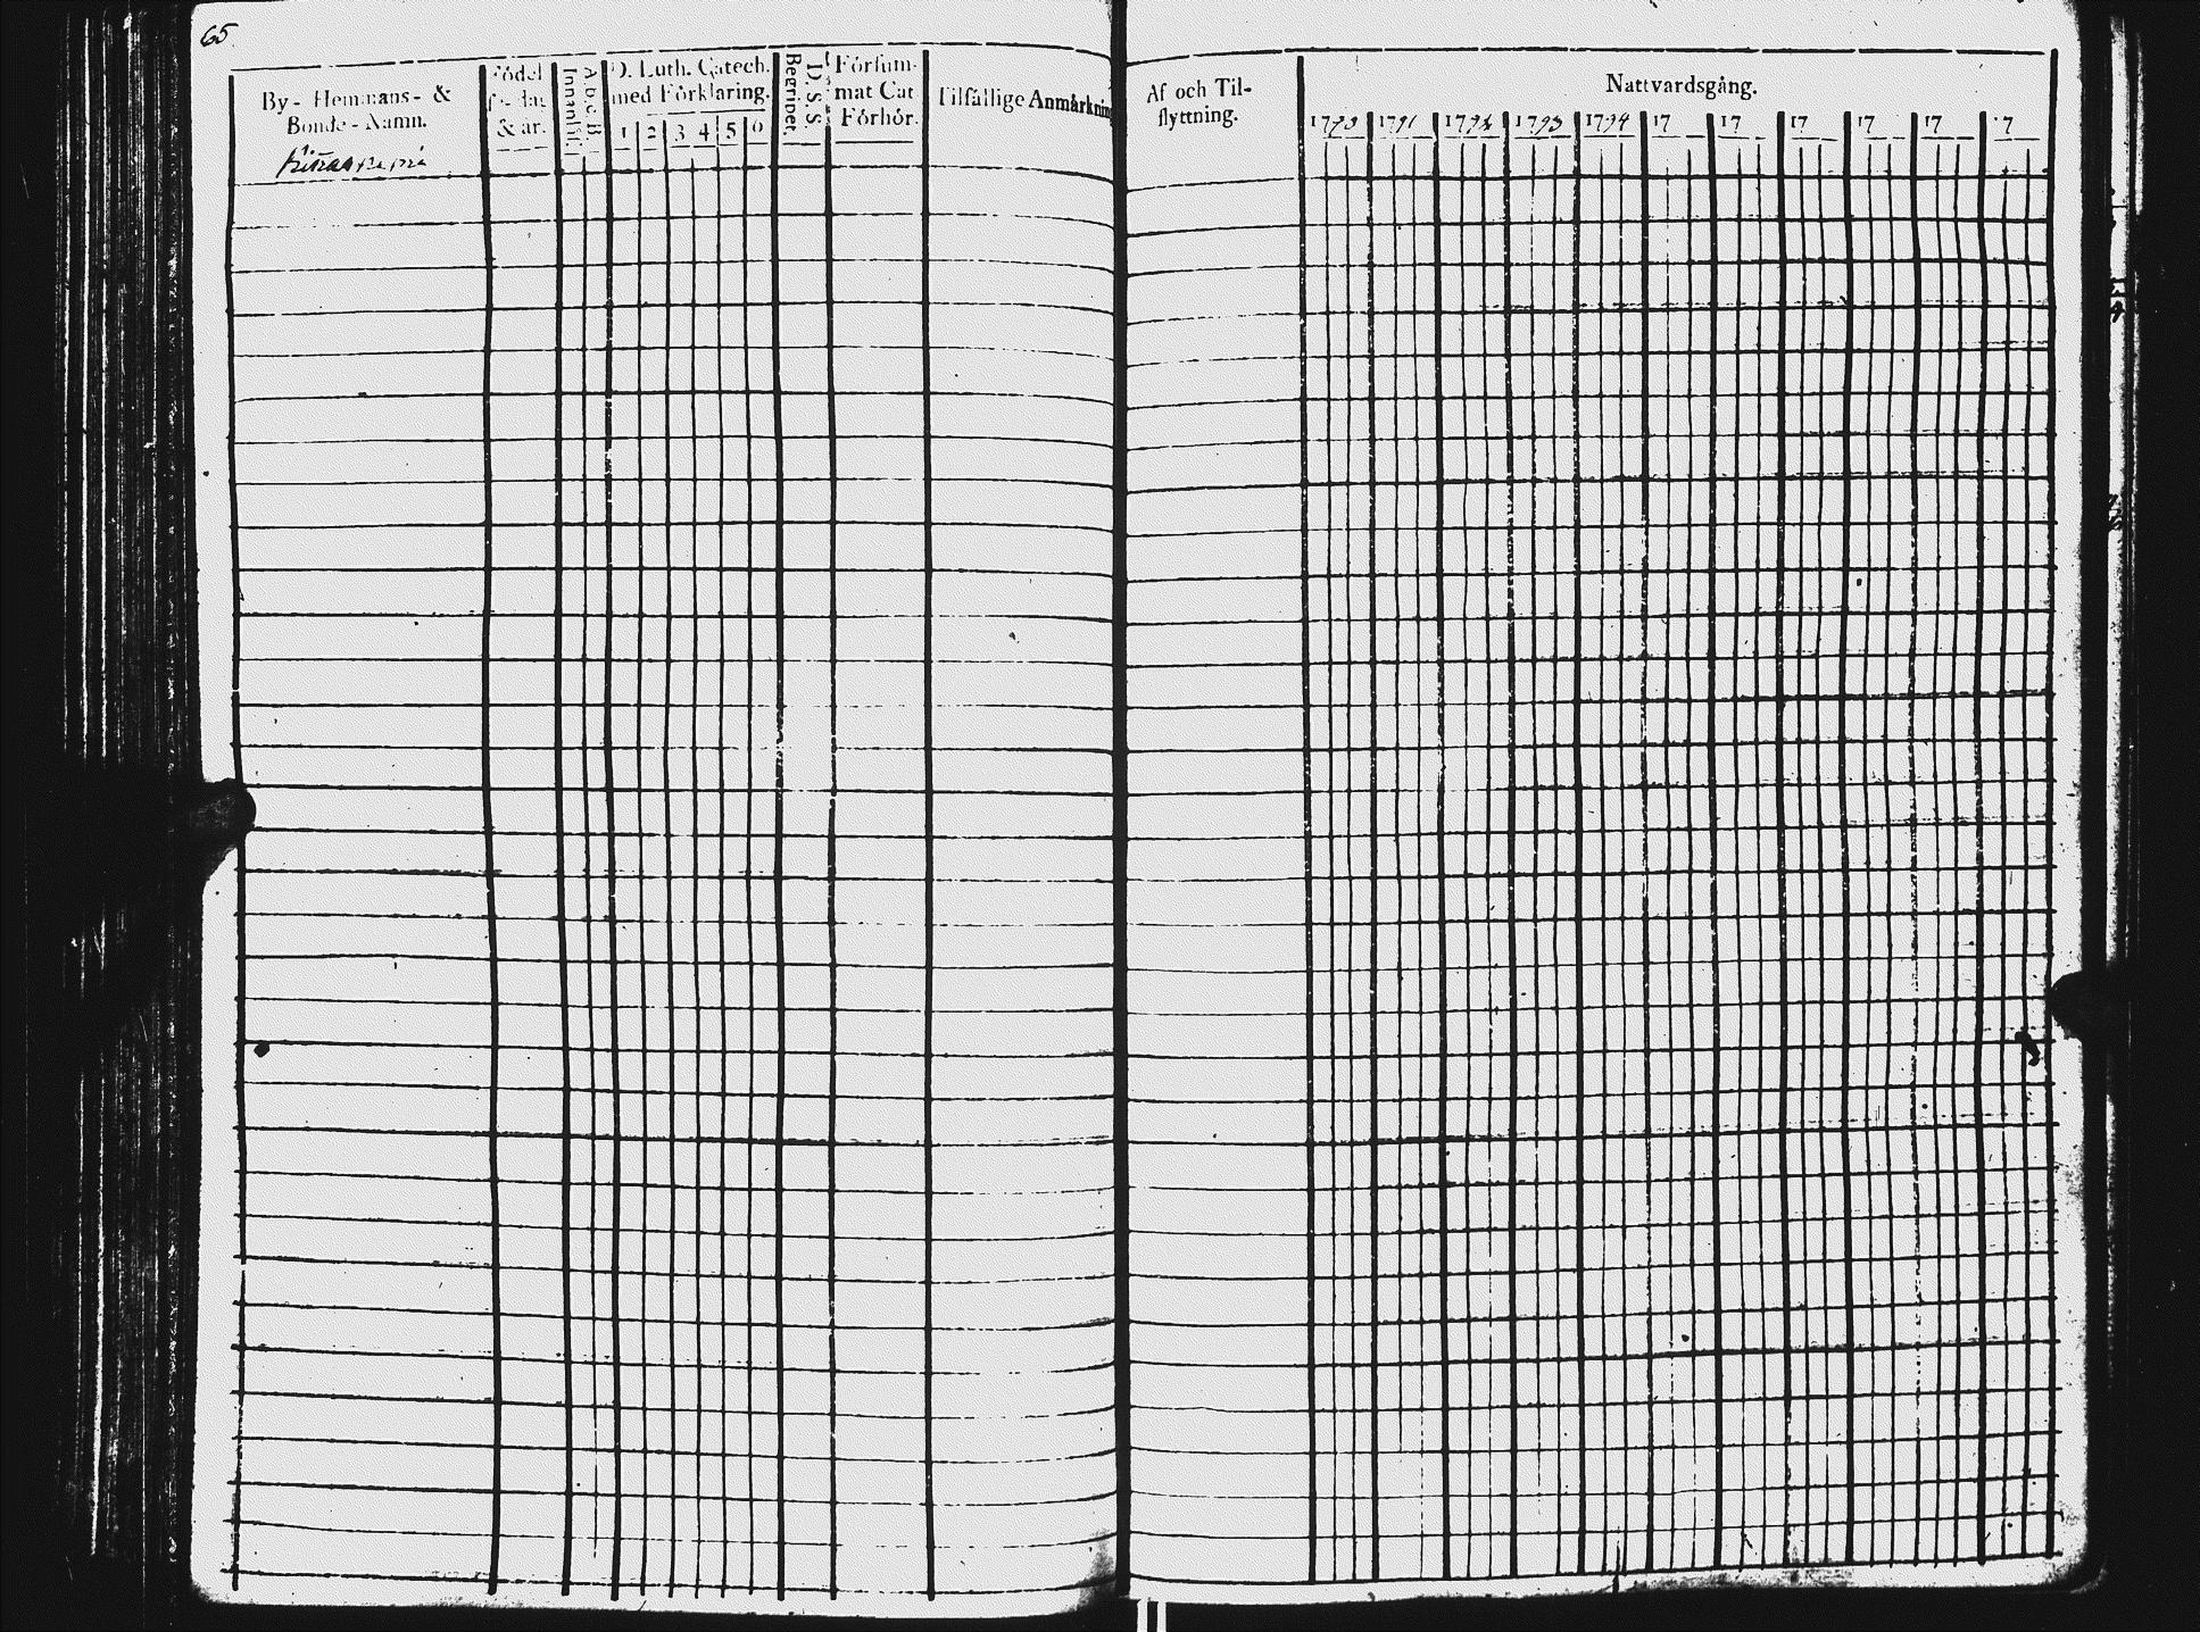 65
By- Hemmans- &
Bonde-Namn.
Födel
se-dag
& år.
Innanläs.
A.b.c.B.
D. Luth. Catech.
med Förklaring.
1 2 3 4 5 6
Begripet.
D. S. S.
Försum-
mat Cat
Förhör.
Tilfällige Anmärkning
Af och Til-
flyttning.
Nattvardsgång.
1790 1791 1792 1793 1794 17 17 17 17 17 17